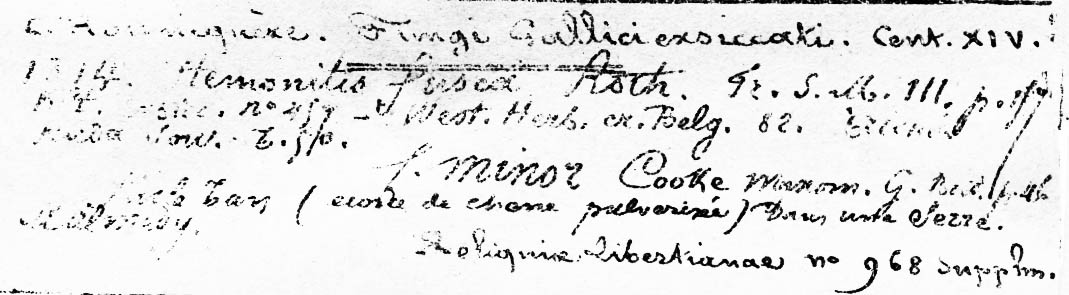 C. Roumeguère. Fungi Gallici exsiccati. Cent. XIV.
1314. Stemonitis fusca Roth. Fr. S. M. III. p. 157
no West. Herb. cr. Belg. 82.
Sow. t. 50.
f. minor Cooke Myxom. G. Brit. p. 46
Tan (ecorce de chene pulverizé) Dans une Serre.
Malmedy.
Reliquiæ Libertianae no 968 supplm.